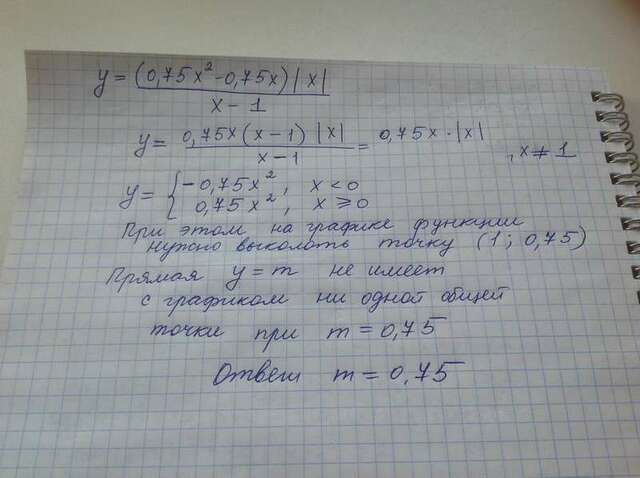 y = (0,75x² - 0,75x) |x| / x - 1
y = 0,75x (x - 1) |x| / x - 1 = 0,75x · |x| , x ≠ 1
y = { - 0,75x² , x < 0
0,75x² , x ⩾ 0
При этом на графике функции
нужно выколоть точку (1 ; 0,75)
Прямая y = m не имеет
с графиком ни одной общей
точки при m = 0,75
Ответ m = 0,75